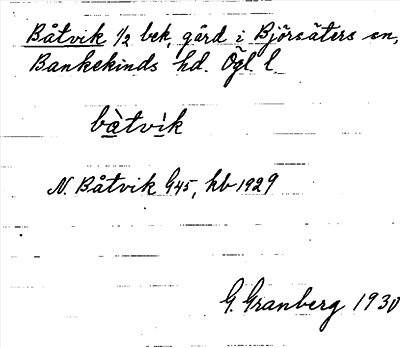 Båtvik ½ bek. gård i Björsäters sn,
Bankekinds hd. Ögl l.
bàtvìk
N. Båtvik G45, kb 1929
G. Granberg 1930